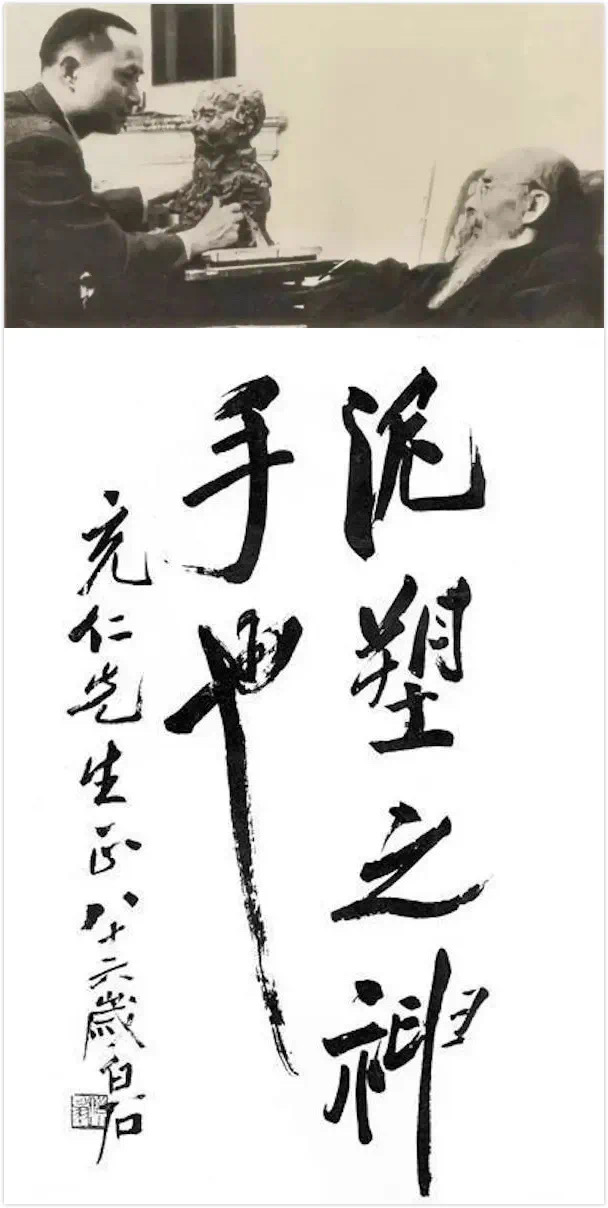 泥塑之神
手也
充仁先生正八十六歲白石